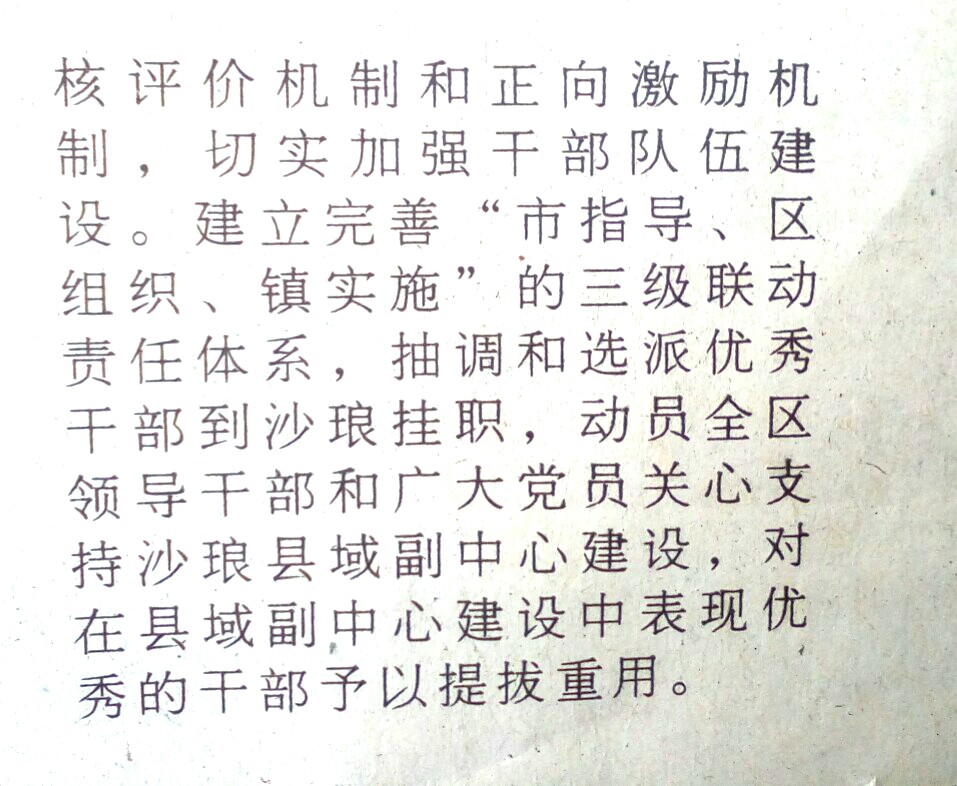 核评价机制和正向激励机
制，切实加强干部队伍建
设。建立完善“市指导、区
组织、镇实施”的三级联动
责任体系，抽调和选派优秀
干部到沙琅挂职，动员全区
领导干部和广大党员关心支
持沙琅县域副中心建设，对
在县域副中心建设中表现优
秀的干部予以提拔重用。